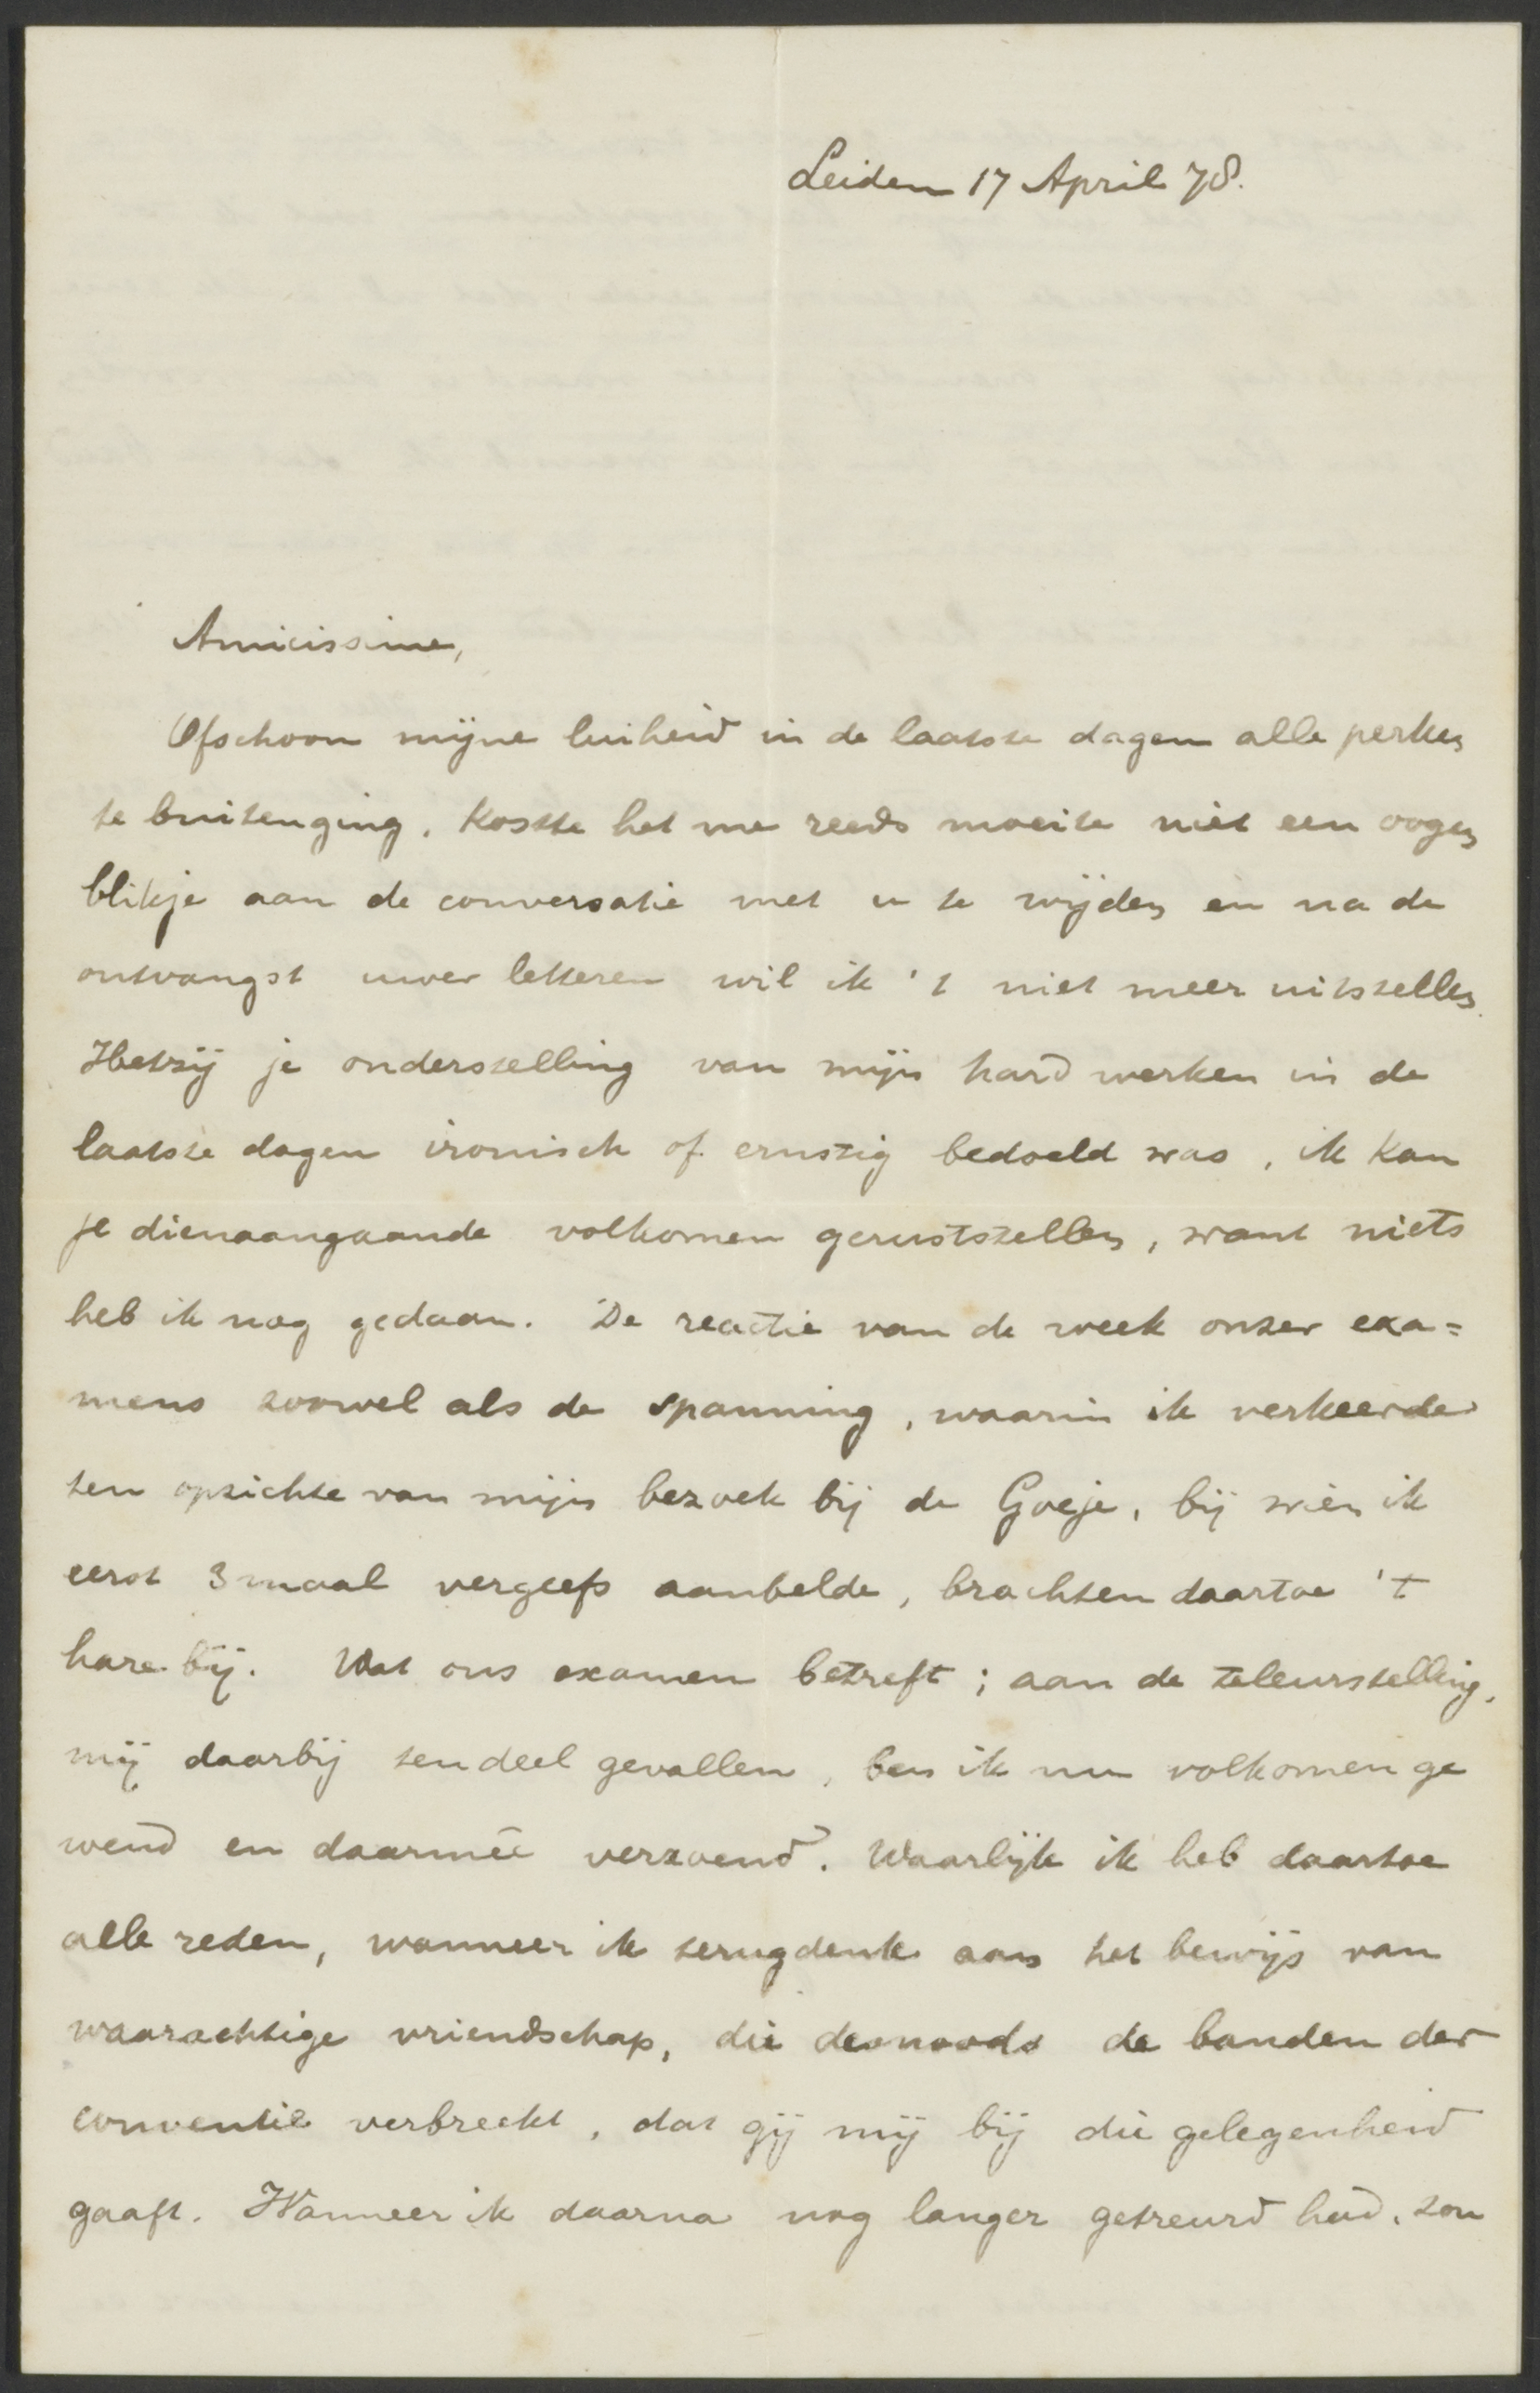 Leiden 17 April 78.
Amicissime,
Ofschoon mijne luiheid in de laatste dagen alle perken
te buitenging, kostte het me reeds moeite niet een oogen
blikje aan de conversatie met u te wijden en na de
ontvangst uwer letteren wil ik 't niet meer uitstellen.
Hetzij je onderstelling van mijn hard werken in de
laatste dagen ironisch of ernstig bedoeld was, ik kan
je dienaangaande volkomen geruststellen, want niets
heb ik nog gedaan. De reactie van de week onzer exa=
mens zoowel als de spanning, waarin ik verkeerde
ten opzichte van mijn bezoek bij de Goeje, bij wien ik
eerst 3 maal vergeefs aanbelde, brachten daartoe 't
hare bij. Wat ons examen betreft; aan de teleurstelling,
mij daarbij ten deel gevallen, ben ik nu volkomen ge
wend en daarmêe verzoend. Waarlijk ik heb daartoe
alle reden, wanneer ik terugdenk aan het bewijs van
waarachtige vriendschap, die desnoods de banden der
conventie verbreekt, dat gij mij bij die gelegenheid
gaaft. Wanneer ik daarna nog langer getreurd had, zou